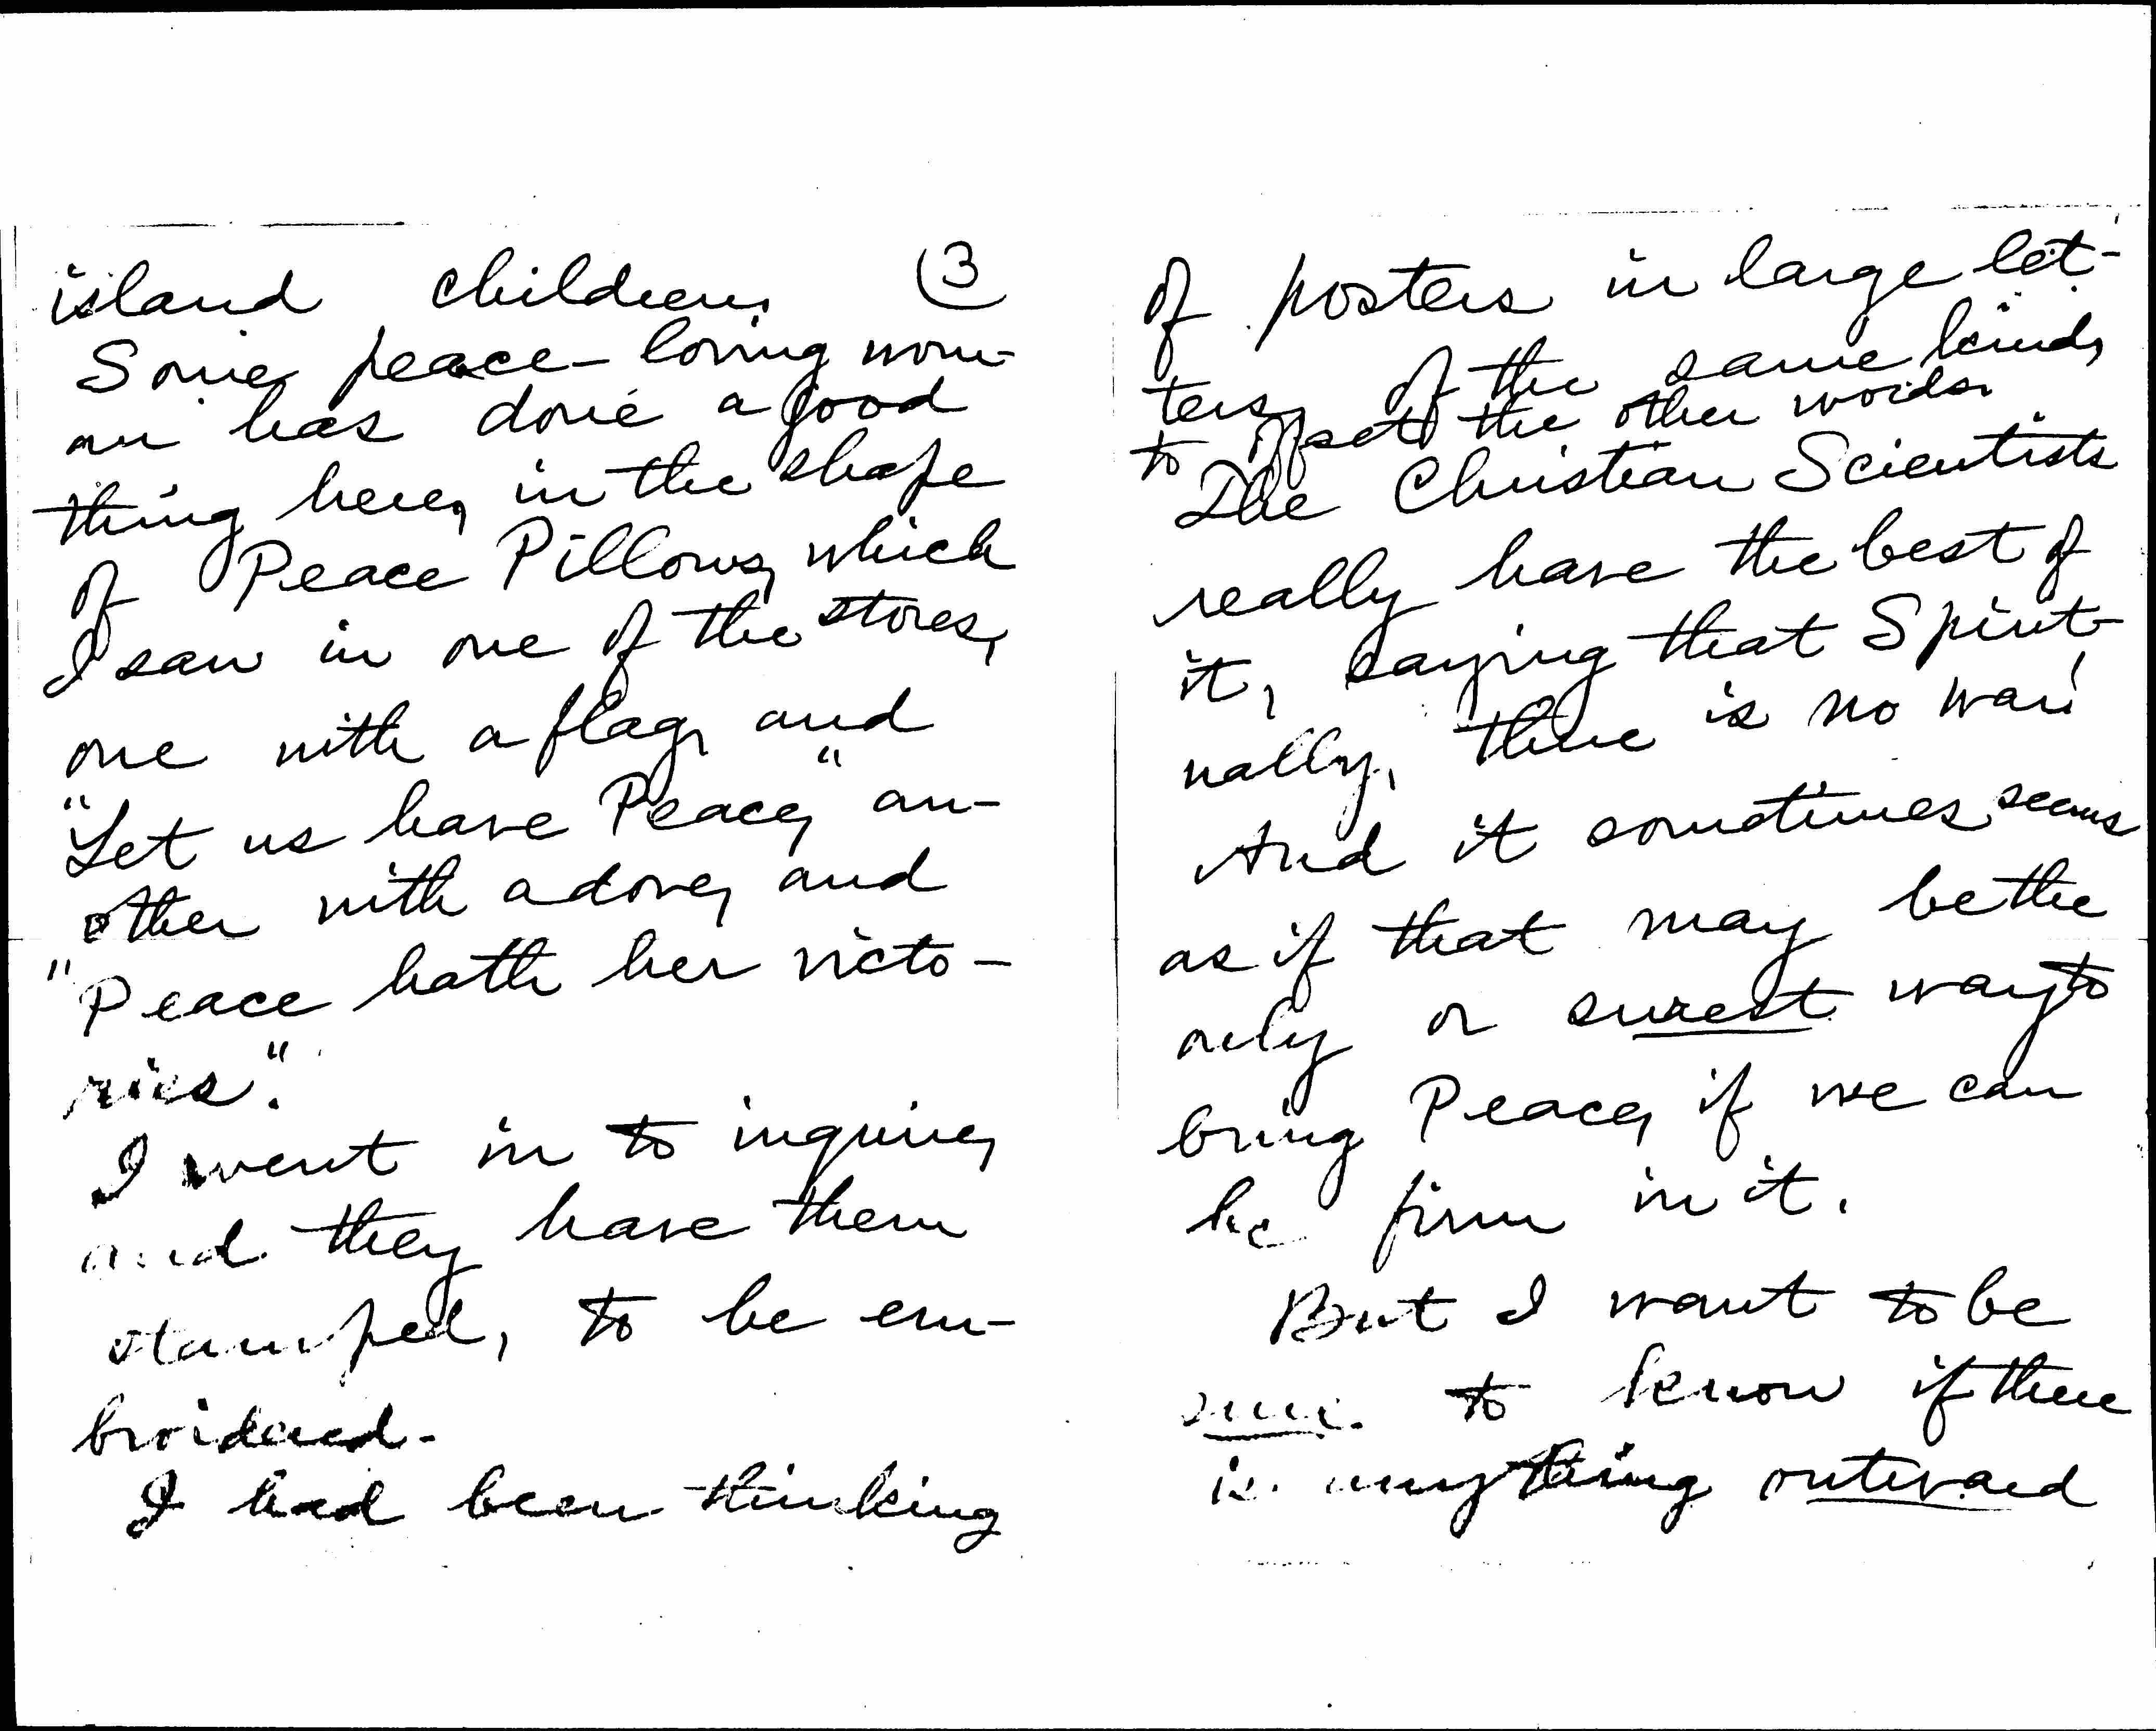 island children. (3
Some peace-loving wom-
an has done a good
thing here, in the shape
of Peace Pillows, which
I saw in one of the stores,
one with a flag, and
"Let us have Peace," an-
other with a dove, and
"Peace hath her victo-
ries".
I went in to inquire,
and they have them
stamped, to be em-
broidered.
I had been thinking
of posters in large let-
ters, of the same kind,
to offset the other words.
The Christian Scientists
really have the best of
it, saying that Spirit-
ually, there is no war!
And it sometimes seems
as if that may be the
only or surest way to
bring Peace, if we can
be firm in it.
But I want to be
sure to know if there
is anything outward